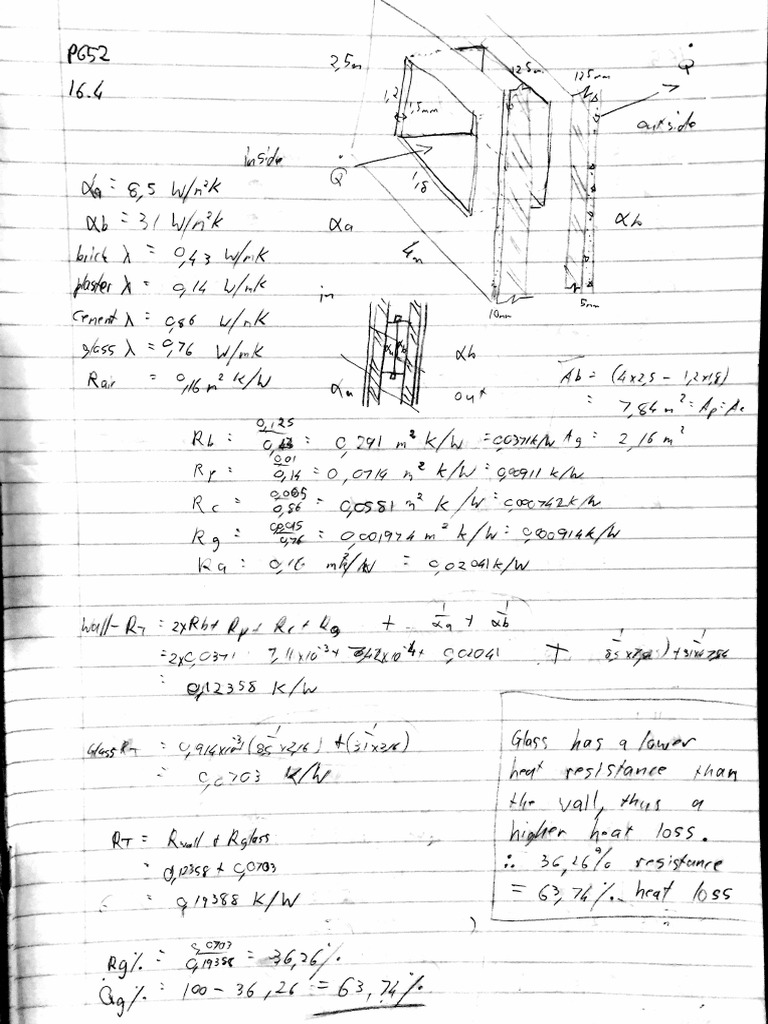 PG52
16.4
2,5m
1,2
1,5mm
1,8
4m
125m
125mm
Q̇
outside
inside
Q̇
αa
αb
10mm
5mm
αa = 8,5 W/m²K
αb = 31 W/m²K
brick λ = 0,43 W/mK
plaster λ = 0,14 W/mK
cement λ = 0,86 W/mK
glass λ = 0,76 W/mK
Rair = 0,16 m² K/W
in
αa
αb
out
Ab = (4x2,5 - 1,2x1,8)
= 7,84 m² = Ap = Ac
Rb = 0,125/0,43 = 0,291 m² K/W = 0,0371 K/W Ag = 2,16 m²
Rp = 0,01/0,14 = 0,0714 m² K/W = 0,00911 K/W
Rc = 0,005/0,86 = 0,0581 m² K/W = 0,000742 K/W
Rg = 0,0015/0,76 = 0,001974 m² K/W = 0,000914 K/W
Ra = 0,16 m²K/W = 0,02041 K/W
Wall-RT = 2xRb + Rp + Rc + Ra + 1/αa + 1/αb
= 2x0,0371 + 9,11x10⁻³ + 7,42x10⁻⁴ + 0,02041 +
= 0,12358 K/W
Glass RT = 0,914x10⁻³ (1/8,5x2,16) + (1/31x2,16)
= 0,0703 K/W
RT = Rwall + Rglass
= 0,12358 + 0,0703
= 0,19388 K/W
Rg% = 0,0703/0,19388 = 36,26%
Qg% = 100 - 36,26 = 63,74%
Glass has a lower
heat resistance than
the wall, thus a
higher heat loss.
∴ 36,26% resistance
= 63,74% heat loss